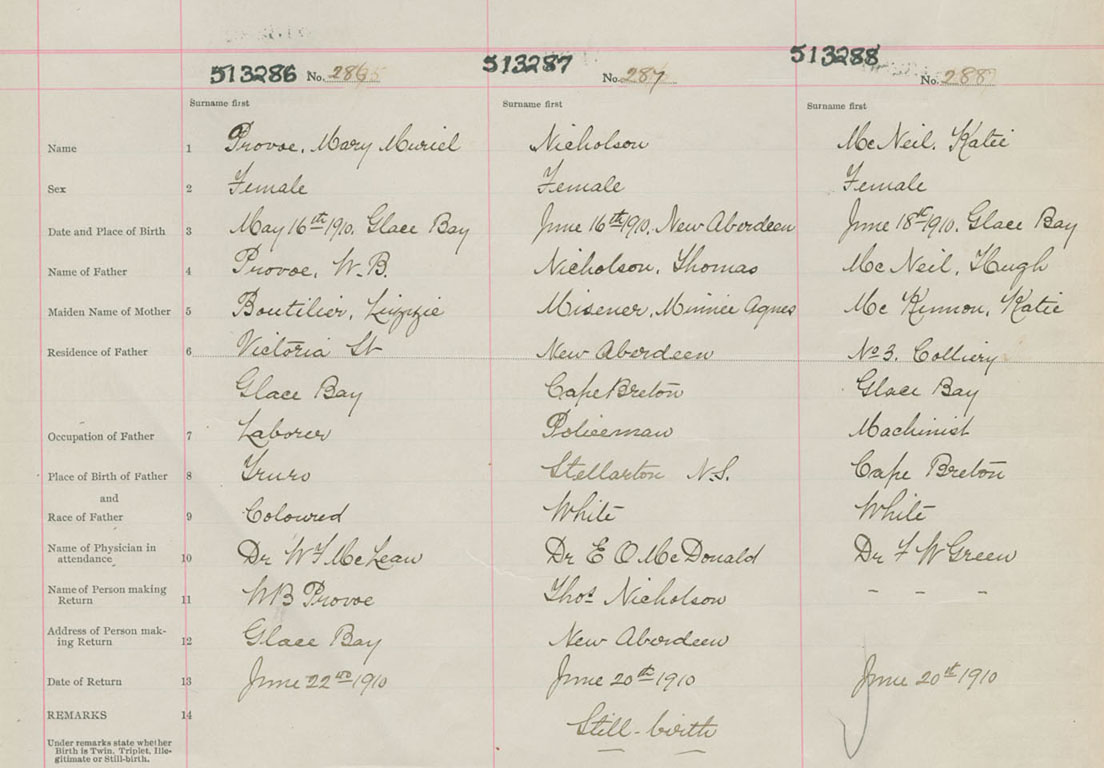 513286 No. 286 513287 No. 287 513288 No. 288
Surname first Surname first Surname first
Name 1 Provoe, Mary Muriel Nicholson McNeil, Katie
Sex 2 Female Female Female
Date and Place of Birth 3 May 16th 1910, Glace Bay June 16th 1910, New Aberdeen June 18th 1910, Glace Bay
Name of Father 4 Provoe, W. B. Nicholson, Thomas McNeil, Hugh
Maiden Name of Mother 5 Boutilier, Lizzie Misener, Minnie Agnes McKinnon, Katie
Residence of Father 6 Victoria St New Aberdeen No 3. Colliery
Glace Bay Cape Breton Glace Bay
Occupation of Father 7 Laborer Policeman Machinist
Place of Birth of Father 8 Truro Stellarton N.S. Cape Breton
and
Race of Father 9 Coloured White White
Name of Physician in
attendance 10 Dr W F McLean Dr E O McDonald Dr F W Green
Name of Person making
Return 11 W B Provoe Thos Nicholson - - -
Address of Person mak-
ing Return 12 Glace Bay New Aberdeen
Date of Return 13 June 22nd 1910 June 20th 1910 June 20th 1910
REMARKS 14 Still-birth
Under remarks state whether
Birth is Twin, Triplet, Ille-
gitimate or Still-birth.